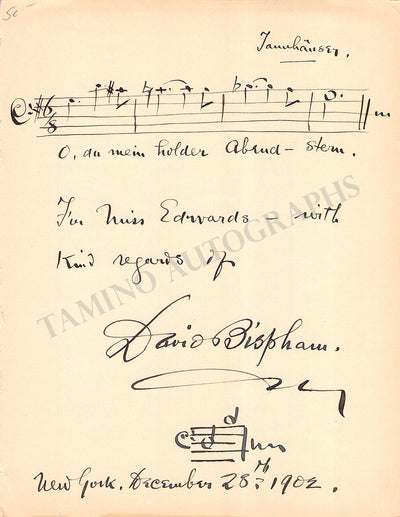 50 -
Tannhäuser.
6/8
O, du mein holder Abend - stern.
For Miss Edwards - with
Kind regards of
TAMINO AUTOGRAPHS
David Bispham.
New York. December 28th 1902.